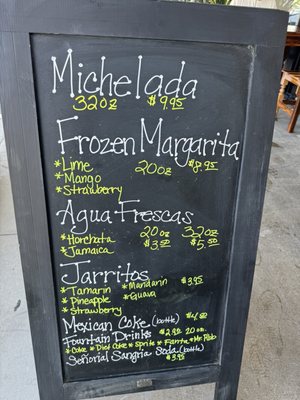 Michelada
32oz $9.95
Frozen Margarita
*Lime 20oz $8.95
*Mango
*Strawberry
Agua Frescas
20oz 32oz
*Horchata $3.50 $5.50
*Jamaica
Jarritos
*Tamarin *Mandarin $3.95
*Pineapple *Guava
*Strawberry
Mexican Coke (bottle) $4.00
Fountain Drinks $2.95 20oz.
*Coke *Diet Coke *Sprite *Fanta *Mr. Pibb
Señorial Sangria Soda (bottle)
$3.95